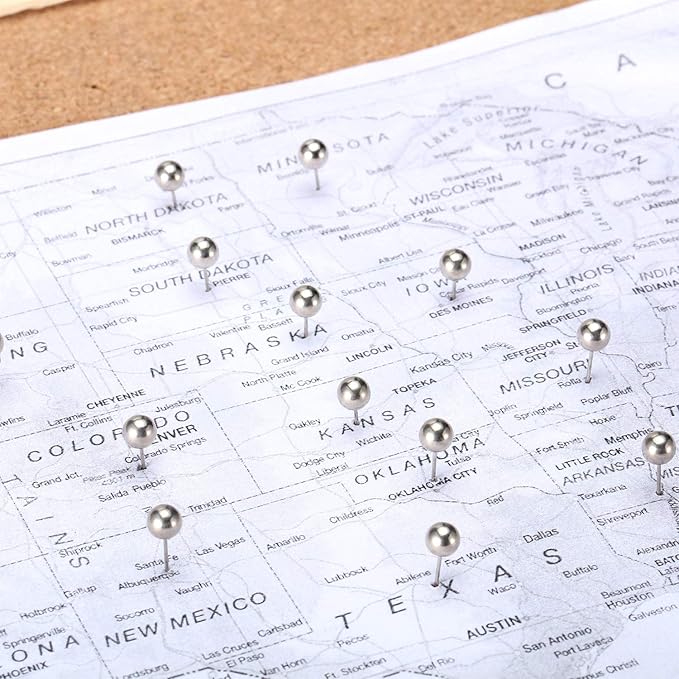 C A
Lake Superior
MINNESOTA
MICHIGAN
Lake Michigan
Williston
Minot
Forks
NORTH DAKOTA
Fargo
BISMARCK
WISCONSIN
St. Cloud
Minneapolis
ST-PAUL
Green Bay
Milwaukee
LANSING
Bowman
Mobridge
SOUTH DAKOTA
PIERRE
Albert Lea
MADISON
Chicago
South Bend
Spearfish
Rapid City
Sioux Falls
Mason City
Rapids
Davenport
IOWA
DES MOINES
ILLINOIS
Peoria
Bloomington
SPRINGFIELD
INDIANA
Buffalo
NG
Casper
GREAT
PLAINS
Chadron
Valentine
Bassett
NEBRASKA
Grand Island
Omaha
LINCOLN
North Platte
Mc. Cook
Kansas City
JEFFERSON
CITY
MISSOURI
Rolla
Cairo
CHEYENNE
Laramie
Rawlins
Julesburg
Ft. Collins
COLORADO
DENVER
Colorado Springs
Grand Jct.
Pikes Peak
4301 m
Salida
Pueblo
Trinidad
TOPEKA
Oakley
KANSAS
Wichita
Dodge City
Liberal
Joplin
Springfield
Poplar Bluff
Hoxie
OKLAHOMA
Tulsa
OKLAHOMA CITY
Fort Smith
Memphis
LITTLE ROCK
ARKANSAS
MISS
Texarkana
Shreveport
Shiprock
Santa Fe
Las Vegas
Amarillo
Childress
Red
Gallup
Albuquerque
Vaughn
Lubbock
Abilene
Fort Worth
Dallas
Waco
Buffalo
Alexandria
BATON
Lafayette
Beaumont
Houston
Galveston
Holbrook
Springerville
Socorro
NEW MEXICO
Carlsbad
Las Cruces
El Paso
Lordsburg
Van Horn
Pecos
TEXAS
AUSTIN
San Antonio
Port Lavaca
Ft. Stockton
Del Rio
ONA
PHOENIX